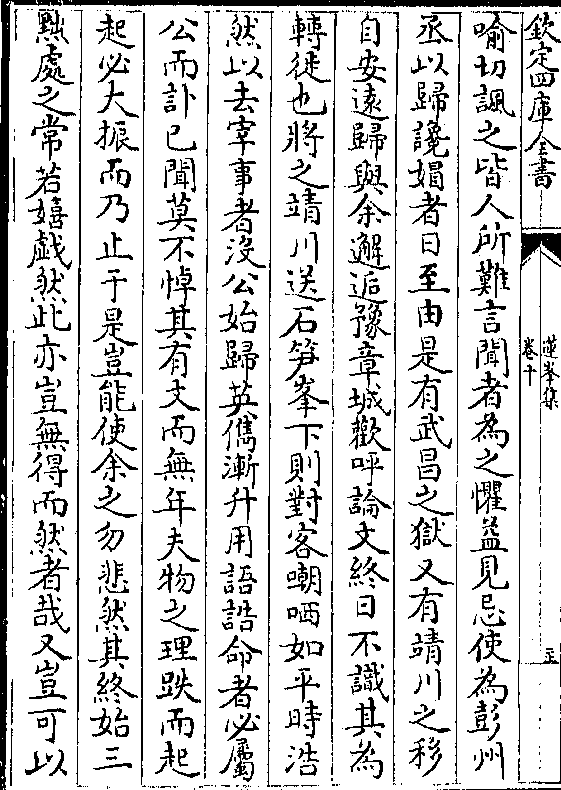 欽定四庫全書
蓮峯集
卷十
喻切諷之皆人所難言聞者為之懼益見忌使為彭州
丞以歸讒媢者日至由是有武昌之獄又有靖川之移
自安遠歸與余邂逅豫章城歡呼論文終日不識其為
轉徙也將之靖川送石笋峯下則對客嘲哂如平時浩
然以去宰事者沒公始歸英儁漸升用語誥命者必屬
公而訃已聞莫不悼其有文而無年夫物之理跌而起
起必大振而乃止于是豈能使余之勿悲然其終始三
黜處之常若嬉戯然此亦豈無得而然者哉又豈可以